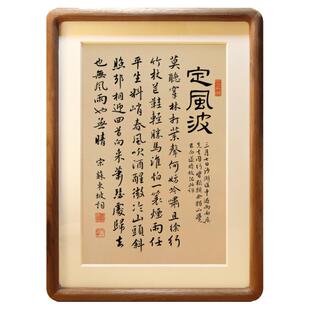 定風波
三月七日沙湖道中遇雨雨具
先去同行皆狼狽余獨不覺
已而遂晴故作此
莫聽穿林打葉聲何妨吟嘯且徐行
竹杖芒鞋輕勝馬誰怕一蓑煙雨任
平生料峭春風吹酒醒微冷山頭斜
照卻相迎回首向來蕭瑟處歸去
也無風雨也無晴 宋蘇東坡詞